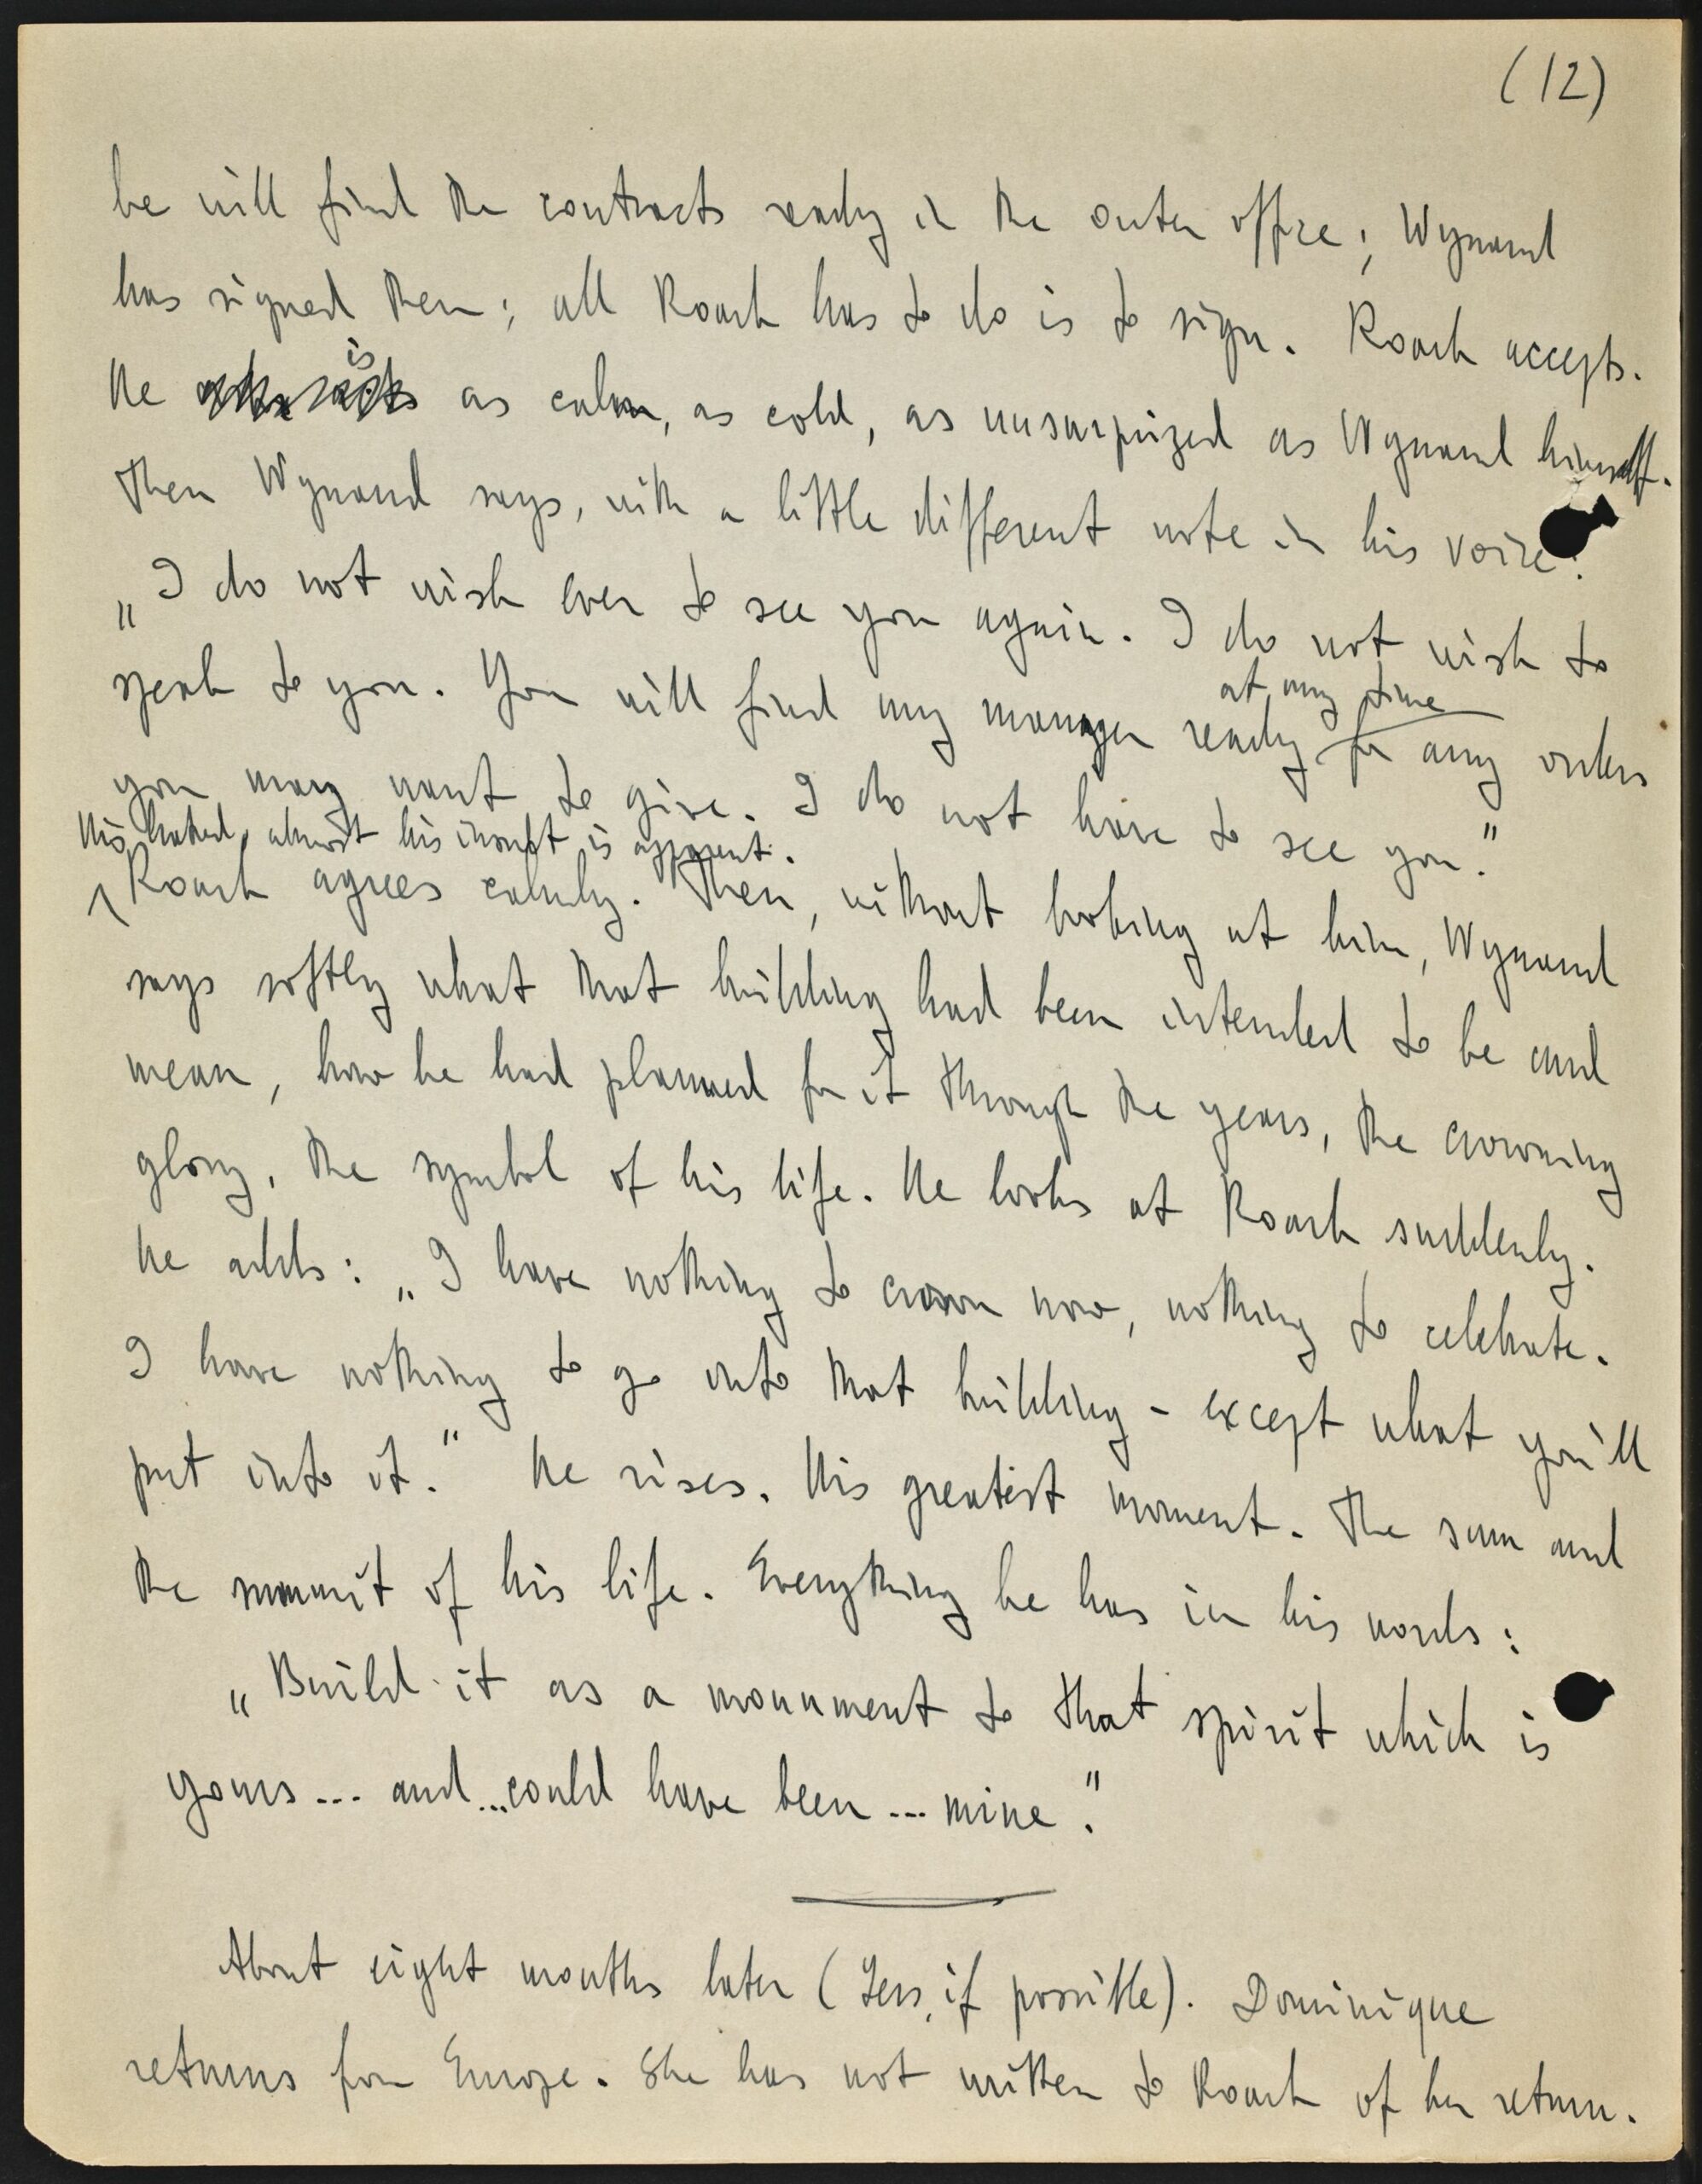 (12)
he will find the contracts ready in the outer office; Wynand
has signed them; all Roark has to do is to sign. Roark accepts.
He is as calm, as cold, as unsurprized as Wynand himself.
Then Wynand says, with a little different note in his voice:
„I do not wish ever to see you again. I do not wish to
speak to you. You will find my manager ready
at any time
for any orders
you may want to give. I do not have to see you."
His hatred, almost his insult is apparent.
Roark agrees calmly. Then, without looking at him, Wynand
says softly what that building had been intended to be and
mean, how he had planned for it through the years, the crowning
glory, the symbol of his life. He looks at Roark suddenly.
He adds: „I have nothing to crown now, nothing to celebrate.
I have nothing to go into that building - except what you'll
put into it." He rises. His greatest moment. The sum and
the summit of his life. Everything he has in his words:
„Build it as a monument to that spirit which is
yours... and...could have been... mine."
About eight months later (Less, if possible). Dominique
returns from Europe. She has not written to Roark of her return.